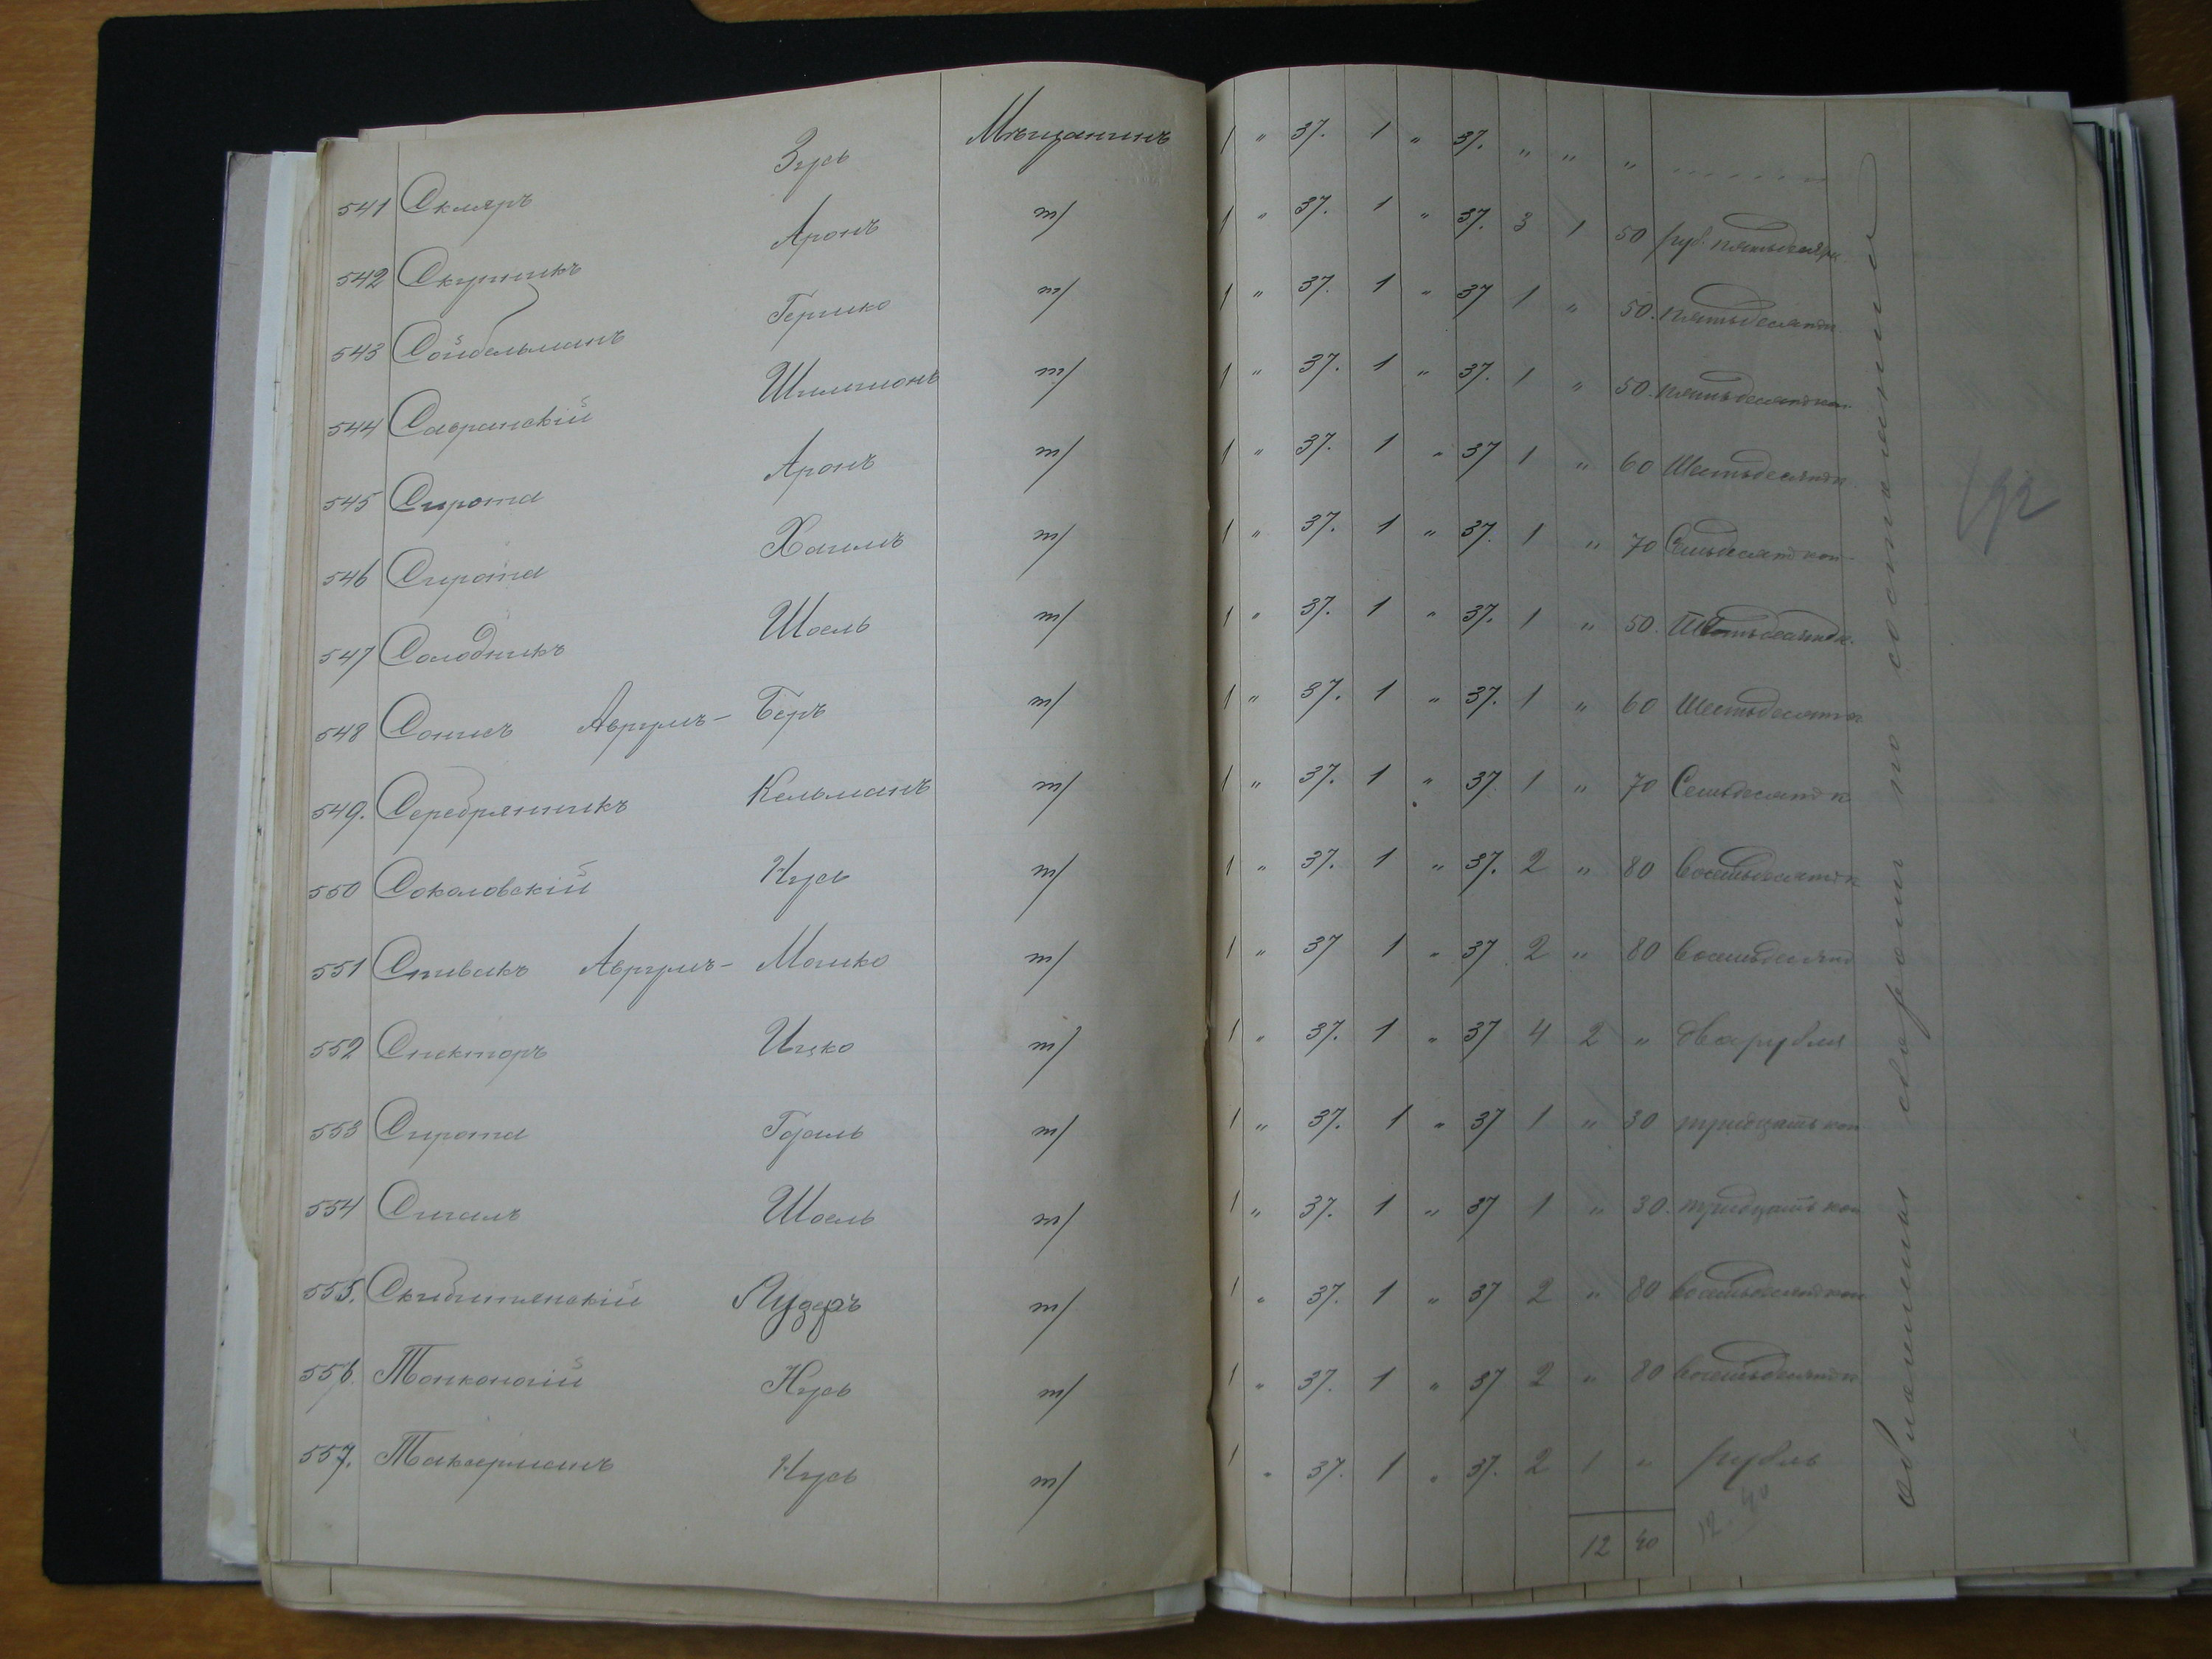 541 Скляръ Зусь Мѣщанинъ 1 " 37. 1 " 37. " " "
542 Скутникъ Аронъ т/ 1 " 37. 1 " 37. 3 1 50 руб. пятьдесятъ
543 Сойбельманъ Гершко т/ 1 " 37. 1 " 37 1 " 50. пятьдесятъ
544 Савранскій Шлиміонъ т/ 1 " 37. 1 " 37. 1 " 50. пятьдесятъ коп
545 Сирота Аронъ т/ 1 " 37. 1 " 37 1 " 60 Шестьдесятъ к
546 Сирота Хаимъ т/ 1 " 37. 1 " 37. 1 " 70 Семьдесятъ коп
547 Солодникъ Шоель т/ 1 " 37. 1 " 37. 1 " 50.
548 Сонисъ Аврумъ-Беръ т/ 1 " 37. 1 " 37. 1 " 60 Шестьдесятъ к
549. Серебрянникъ Кельманъ т/ 1 " 37. 1 " 37. 1 " 70 Семьдесятъ к
550 Соколовскій Нусь т/ 1 " 37. 1 " 37. 2 " 80 Восемьдесятъ к
551 Спивакъ Аврумъ-Мошко т/ 1 " 37 1 " 37 2 " 80 Восемьдесятъ
552 Спекторъ Ицко т/ 1 " 37. 1 " 37 4 2 " два рубля
553 Сирота Гдаль т/ 1 " 37. 1 " 37 1 " 30 тридцать коп
554 Сигалъ Шоель т/ 1 " 37. 1 " 37 1 " 30. тридцать коп
555. Скибитянскій Лузеръ т/ 1 " 37. 1 " 37 2 " 80 восемьдесятъ коп
556. Тонконогій Нусь т/ 1 " 37. 1 " 37 2 " 80 восемьдесятъ к
557. Токаерманъ Нусь т/ 1 " 37. 1 " 37. 2 1 " рубль
12 40 12. 40
обложенія сборомъ по состоянію
192